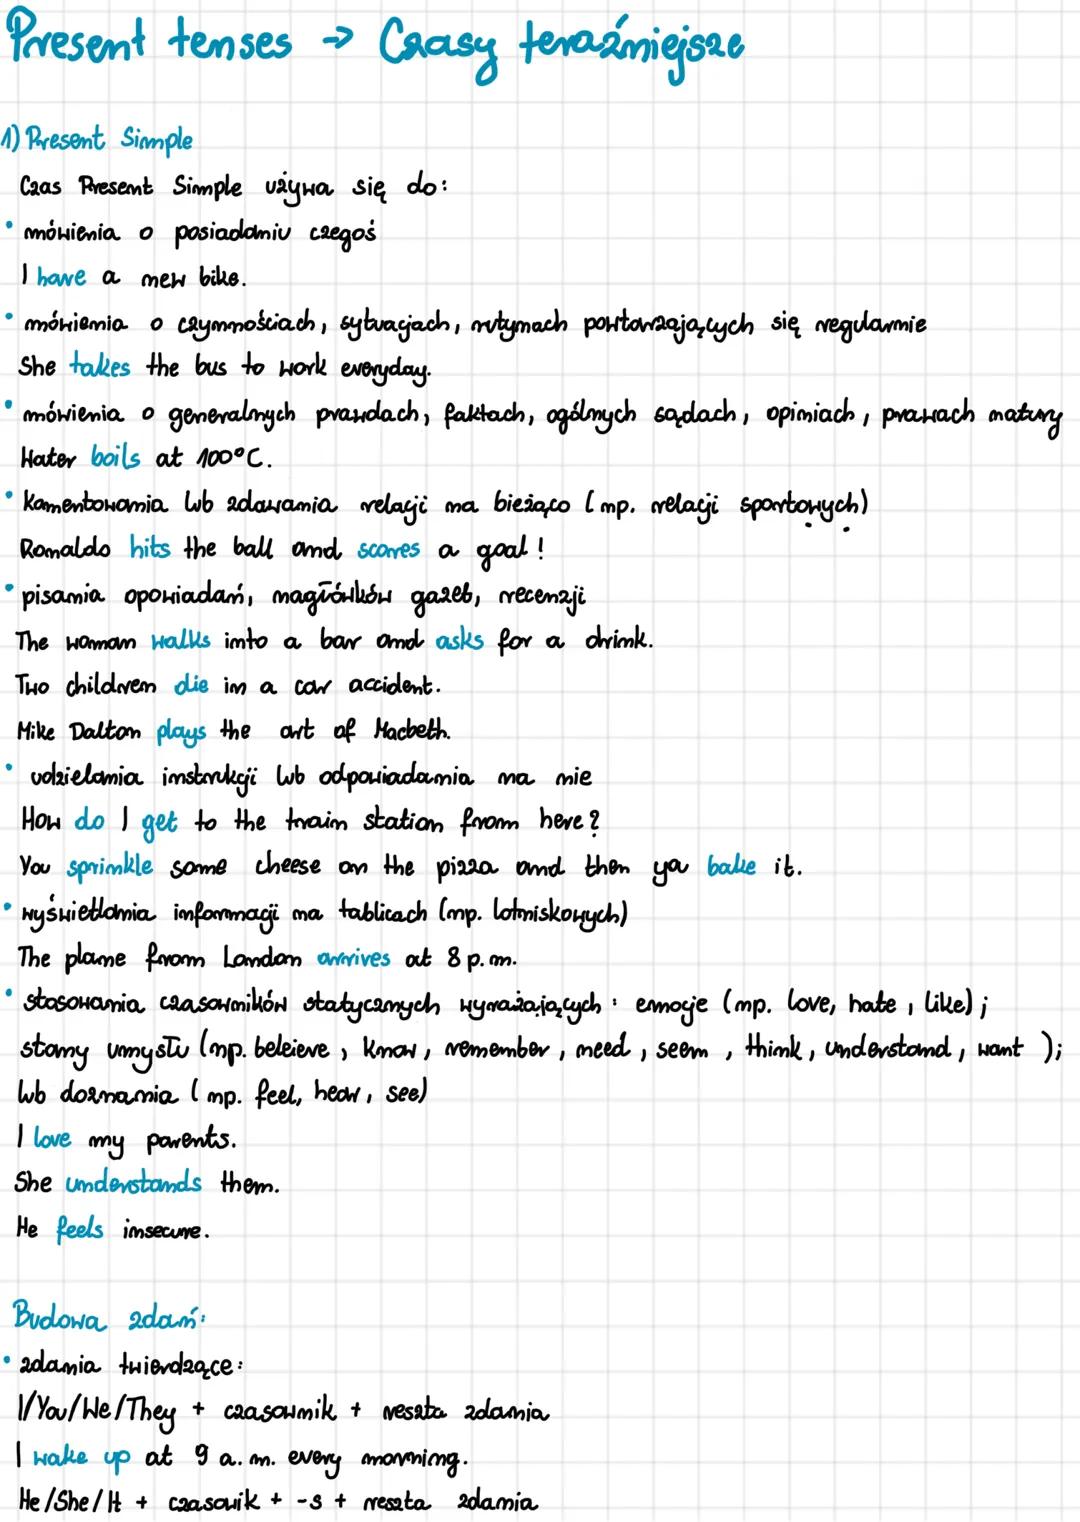 Present tenses → Czasy teraźniejsze
1) Present Simple
Czas Present Simple używa się do:
• mówienia o posiadaniu czegoś
I have a new bike.
• mówienia o czynnościach, sytuacjach, rutynach powtarzających się regularnie
She takes the bus to work everyday.
• mówienia o generalnych prawdach, faktach, ogólnych sądach, opiniach, prawach natury
Water boils at 100°C.
• komentowania lub zdawania relacji na bieżąco (np. relacji sportowych)
Ronaldo hits the ball and scores a goal!
• pisania opowiadań, nagłówków gazet, recenzji
The woman walks into a bar and asks for a drink.
Two children die in a car accident.
Mike Dalton plays the art of Macbeth.
• udzielania instrukcji lub odpowiadania na nie
How do I get to the train station from here?
You sprinkle some cheese on the pizza and then you bake it.
• wyświetlania informacji na tablicach (np. lotniskowych)
The plane from London arrives at 8 p.m.
• stosowania czasowników statycznych wyrażających: emocje (np. love, hate, like);
stany umysłu (np. beleieve, know, remember, need, seem, think, understand, want);
lub doznania (np. feel, hear, see)
I love my parents.
She understands them.
He feels insecure.
Budowa zdań:
• zdania twierdzące:
I/You/We/They + czasownik + reszta zdania
I wake up at 9 a.m. every morning.
He/She/It + czasowik + -s + reszta zdania